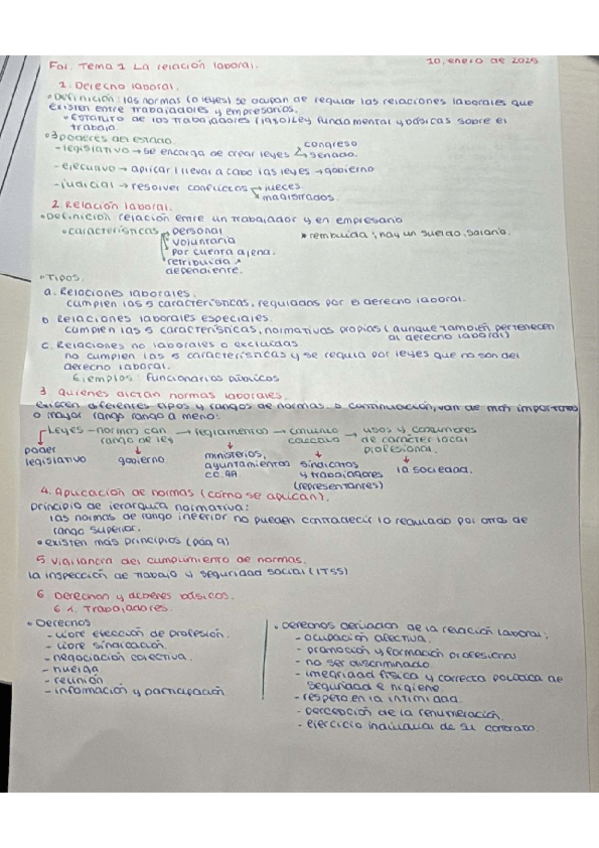 Fol. Tema 1 La relación laboral.
10, enero de 2025
1. Derecho laboral.
• Definición: las normas (o leyes) se ocupan de regular las relaciones laborales que
existen entre trabajadores y empresarios.
• Estatuto de los trabajadores (1980) Ley fundamental y básicas sobre el
trabajo.
• 3 poderes del estado
- legislativo → se encarga de crear leyes
congreso
senado.
- ejecutivo → aplicar / llevar a cabo las leyes → gobierno
- judicial → resolver conflictos
jueces.
magistrados.
2. Relación laboral.
• Definición relación entre un trabajador y en empresario
• características
personal
voluntaria
por cuenta ajena.
retribuida *
dependiente.
* rembuida: hay un sueldo, salario.
• Tipos.
a. Relaciones laborales.
cumplen las 5 características, reguladas por el derecho laboral.
b Relaciones laborales especiales.
cumplen las 5 características, normativas propias (aunque también pertenecen
al derecho laboral)
c. Relaciones no laborales o excluidas
no cumplen las 5 características y se regula por leyes que no son del
derecho laboral.
Ejemplos: funcionarios públicos
3. quienes dictan normas laborales.
existen diferentes tipos y rangos de normas. a continuación, van de más importate
o mayor rango rango a meno:
Leyes - normas con → reglamentos → convenio → usos y costumbres
rango de ley
colectivo
de carácter local
profesional.
poder
legislativo
gobierno
ministerios,
ayuntamientos
CC.AA
sindicatos
y trabajadores
(representantes)
la sociedad.
4. Aplicación de normas (cómo se aplican).
principio de jerarquía normativa:
las normas de rango inferior no pueden contradecir lo regulado por otras de
rango superior.
• existen más principios (pág 9)
5 vigilancia del cumplimiento de normas.
la inspección de trabajo y seguridad social (ITSS)
6 Derechon y deberes básicos.
6.1. Trabajadores.
• Derechos
- libre elección de profesión.
- libre sindicación.
- negociación colectiva.
- huelga
- reunión
- información y participación
• Derechos derivados de la relación laboral:
- ocupación efectiva.
- promoción y formación profesional
- no ser discriminado.
- integridad física y correcta política de
seguridad e higiene.
- respeto en la intimidad.
- percepción de la renumeración.
- ejercicio individual de su contrato.